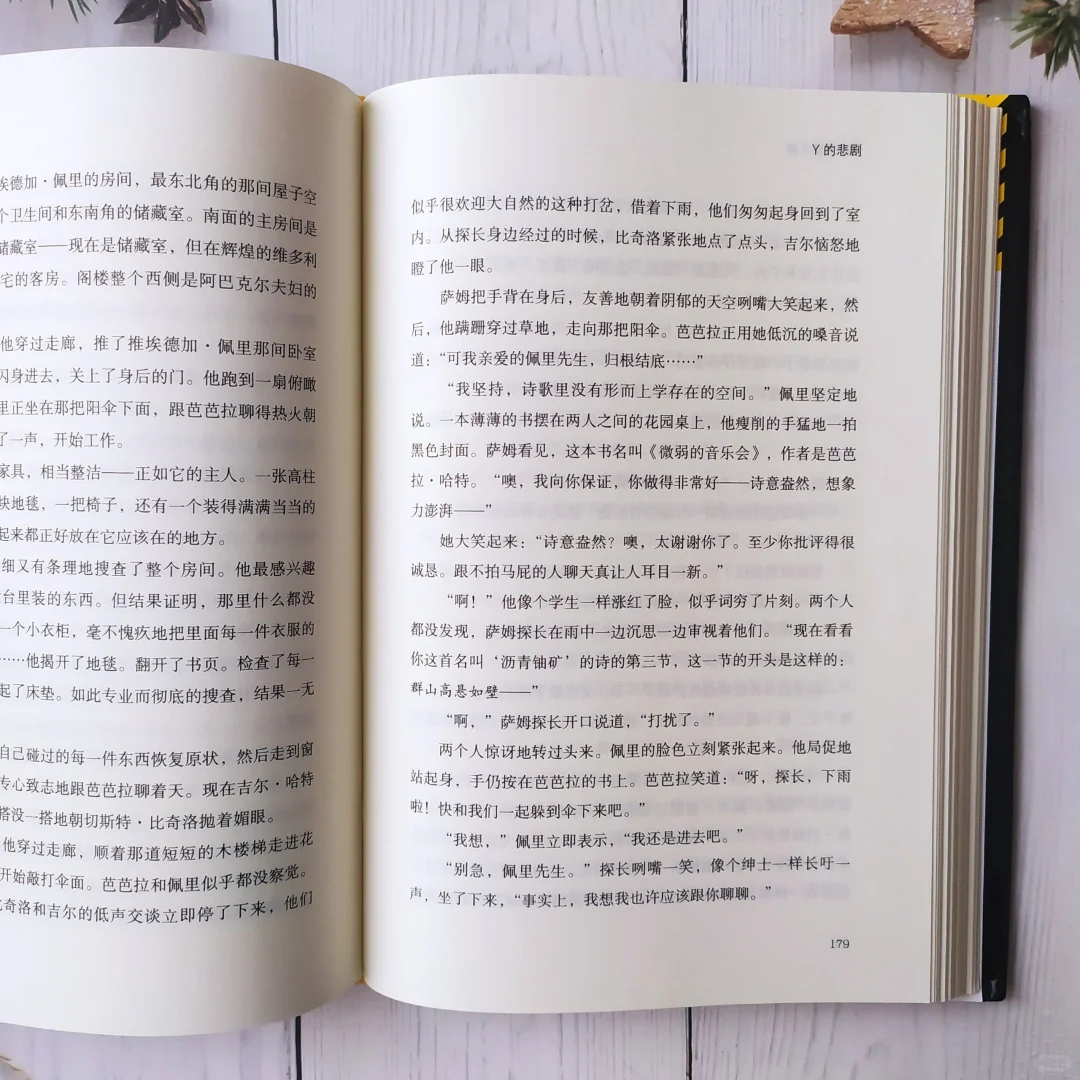 埃德加·佩里的房间，最东北角的那间屋子空
个卫生间和东南角的储藏室。南面的主房间是
储藏室——现在是储藏室，但在辉煌的维多利
宅的客房。阁楼整个西侧是阿巴克尔夫妇的
他穿过走廊，推了推埃德加·佩里那间卧室
闪身进去，关上了身后的门。他跑到一扇俯瞰
里正坐在那把阳伞下面，跟芭芭拉聊得热火朝
了一声，开始工作。
家具，相当整洁——正如它的主人。一张高柱
块地毯，一把椅子，还有一个装得满满当当的
起来都正好放在它应该在的地方。
细又有条理地搜查了整个房间。他最感兴趣
台里装的东西。但结果证明，那里什么都没
一个小衣柜，毫不愧疚地把里面每一件衣服的
……他揭开了地毯。翻开了书页。检查了每一
起了床垫。如此专业而彻底的搜查，结果一无
自己碰过的每一件东西恢复原状，然后走到窗
专心致志地跟芭芭拉聊着天。现在吉尔·哈特
搭没一搭地朝切斯特·比奇洛抛着媚眼。
他穿过走廊，顺着那道短短的木楼梯走进花
开始敲打伞面。芭芭拉和佩里似乎都没察觉。
比奇洛和吉尔的低声交谈立即停了下来，他们
Y的悲剧
似乎很欢迎大自然的这种打岔，借着下雨，他们匆匆起身回到了室
内。从探长身边经过的时候，比奇洛紧张地点了点头，吉尔恼怒地
瞪了他一眼。
萨姆把手背在身后，友善地朝着阴郁的天空咧嘴大笑起来，然
后，他蹒跚穿过草地，走向那把阳伞。芭芭拉正用她低沉的嗓音说
道：“可我亲爱的佩里先生，归根结底……”
“我坚持，诗歌里没有形而上学存在的空间。”佩里坚定地
说。一本薄薄的书摆在两人之间的花园桌上，他瘦削的手猛地一拍
黑色封面。萨姆看见，这本书名叫《微弱的音乐会》，作者是芭芭
拉·哈特。“噢，我向你保证，你做得非常好——诗意盎然，想象
力澎湃——”
她大笑起来：“诗意盎然？噢，太谢谢你了。至少你批评得很
诚恳。跟不拍马屁的人聊天真让人耳目一新。”
“啊！”他像个学生一样涨红了脸，似乎词穷了片刻。两个人
都没发现，萨姆探长在雨中一边沉思一边审视着他们。“现在看看
你这首名叫‘沥青铀矿’的诗的第三节，这一节的开头是这样的：
群山高悬如壁——”
“啊，”萨姆探长开口说道，“打扰了。”
两个人惊讶地转过头来。佩里的脸色立刻紧张起来。他局促地
站起身，手仍按在芭芭拉的书上。芭芭拉笑道：“呀，探长，下雨
啦！快和我们一起躲到伞下来吧。”
“我想，”佩里立即表示，“我还是进去吧。”
“别急，佩里先生。”探长咧嘴一笑，像个绅士一样长吁一
声，坐了下来，“事实上，我想我也许应该跟你聊聊。”
179